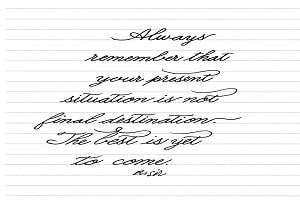 Always
remember that
your present
situation is not
final destination.
The best is yet
to come.